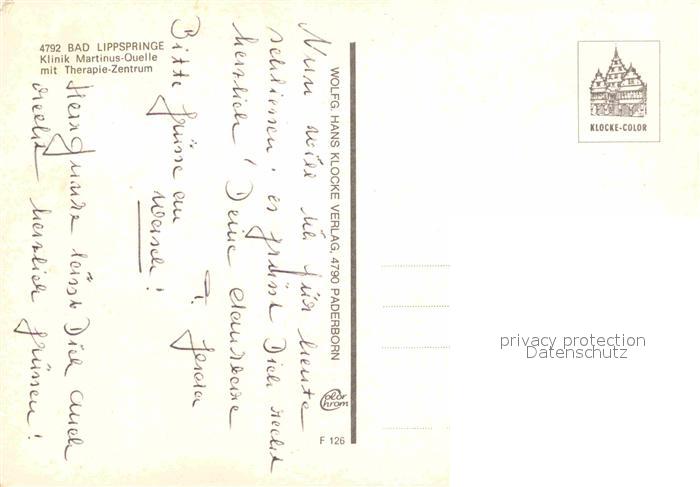 4792 BAD LIPPSPRINGE
Klinik Martinus-Quelle
mit Therapie-Zentrum
Nun will ich für heute
schliessen! es grüsst Dich recht
herzlich! Deine dankbare
T. Gerda
Bitte grüsse am
Herzfunde lässt Dich auch
recht herzlich grüssen!
WOLFG. HANS KLOCKE VERLAG, 4790 PADERBORN
Color
chrom
F 126
KLOCKE-COLOR
privacy protection
Datenschutz